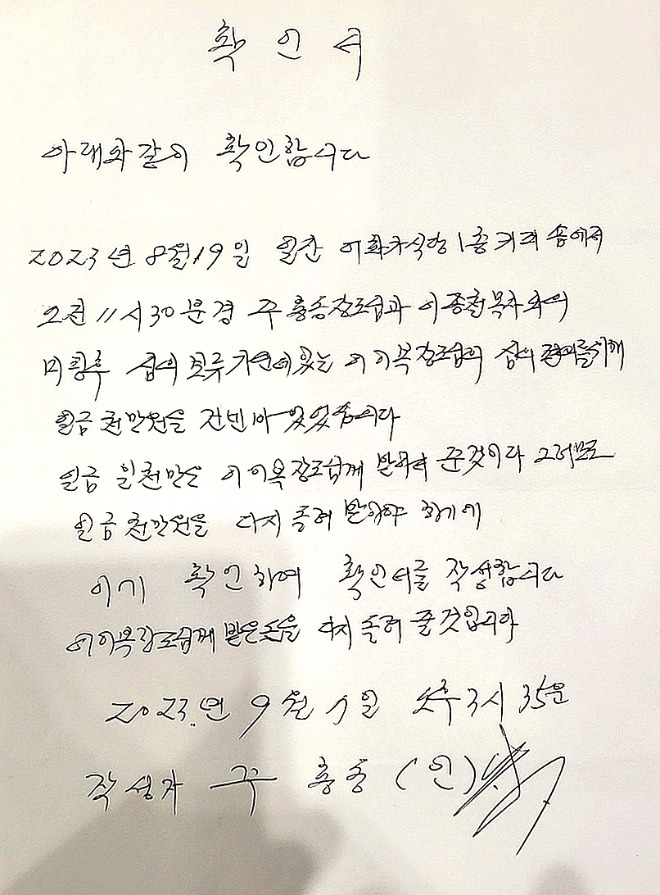 확인서
아래와같이 확인합니다
2023년 8월 19일 월간 식당 1층
오전 11시 30분경 주흥송장로님과 이종철목사와의
있는 이이복장로님의
일금 천만원을 건넨바 있었습니다
일금 일천만원 이이복장로님께 받아서 준것이다 그러므로
일금 천만원을 다시 돌려 받아야 하기에
이기 확인하여 확인서를 작성합니다
이이복장로님께 받은돈을 다시 돌려 줄것입니다
2023.년 9월 1일 오후3시 35분
작성자 주흥송 (인)